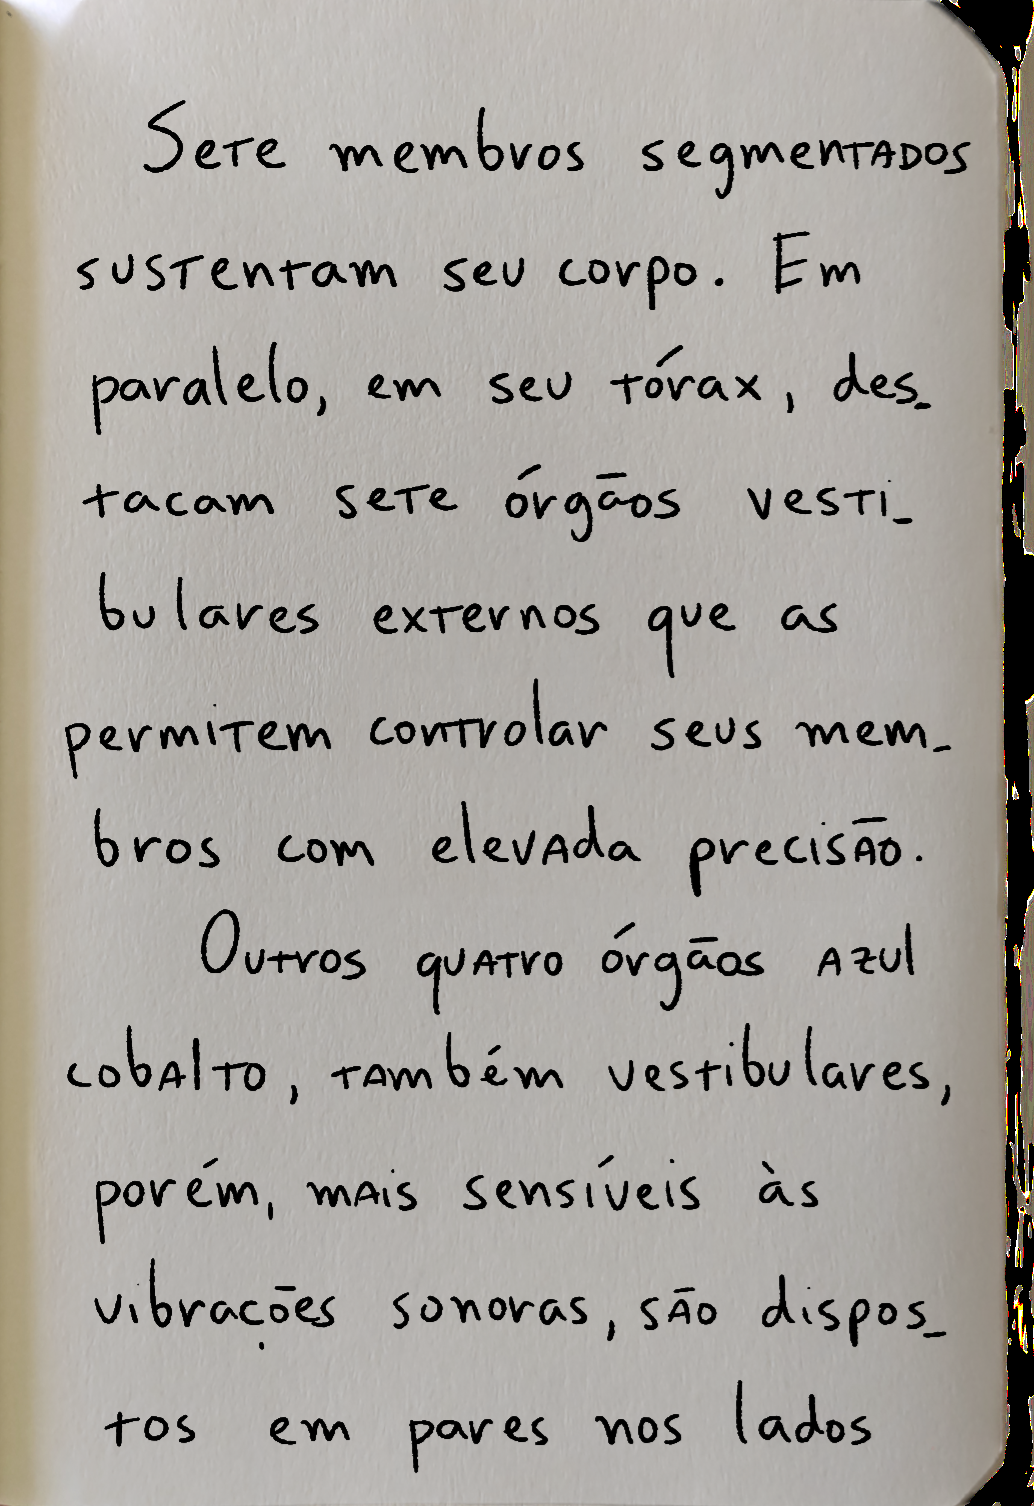 Sete membros segmentados
sustentam seu corpo. Em
paralelo, em seu tórax, des-
tacam sete órgãos vesti-
bulares externos que as
permitem controlar seus mem-
bros com elevada precisão.
Outros quatro órgãos azul
cobalto, também vestibulares,
porém, mais sensíveis às
vibrações sonoras, são dispos-
tos em pares nos lados